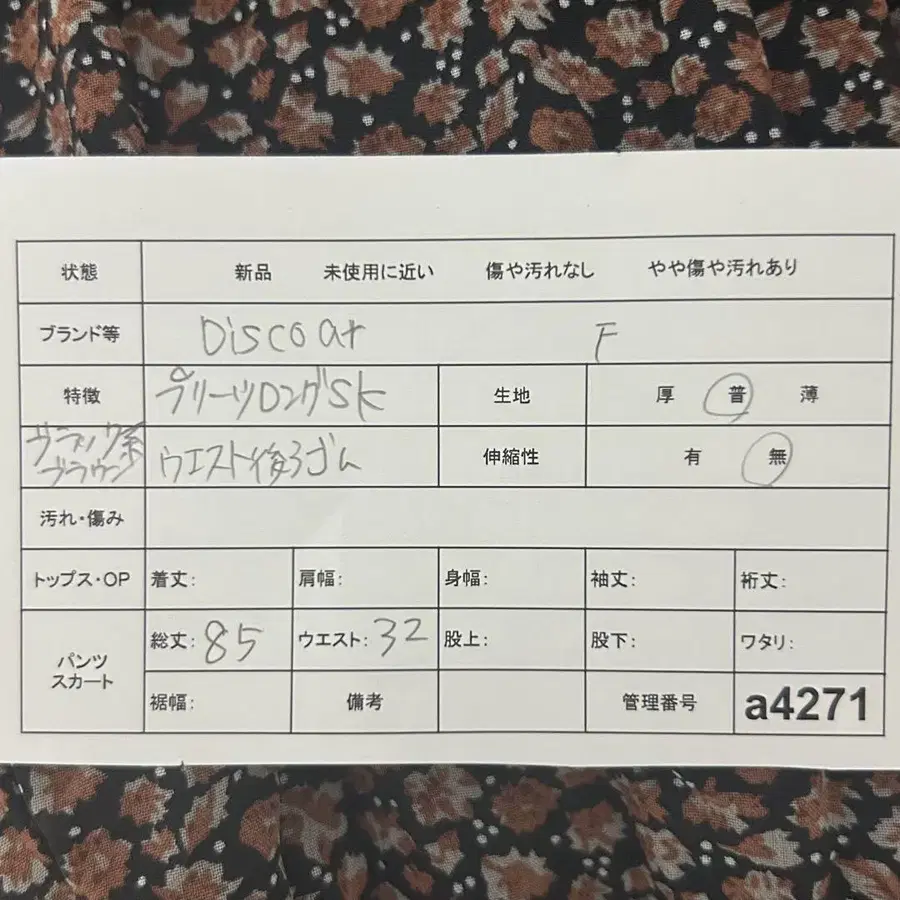 状態 新品 未使用に近い 傷や汚れなし やや傷や汚れあり
ブランド等 Discoat F
特徴 プリーツロングSK 生地 厚 普 薄
ブラック系 ブラウン ウエスト後ろゴム 伸縮性 有 無
汚れ・傷み
トップス・OP 着丈: 肩幅: 身幅: 袖丈: 裄丈:
パンツ スカート 総丈: 85 ウエスト: 32 股上: 股下: ワタリ:
裾幅: 備考 管理番号 a4271